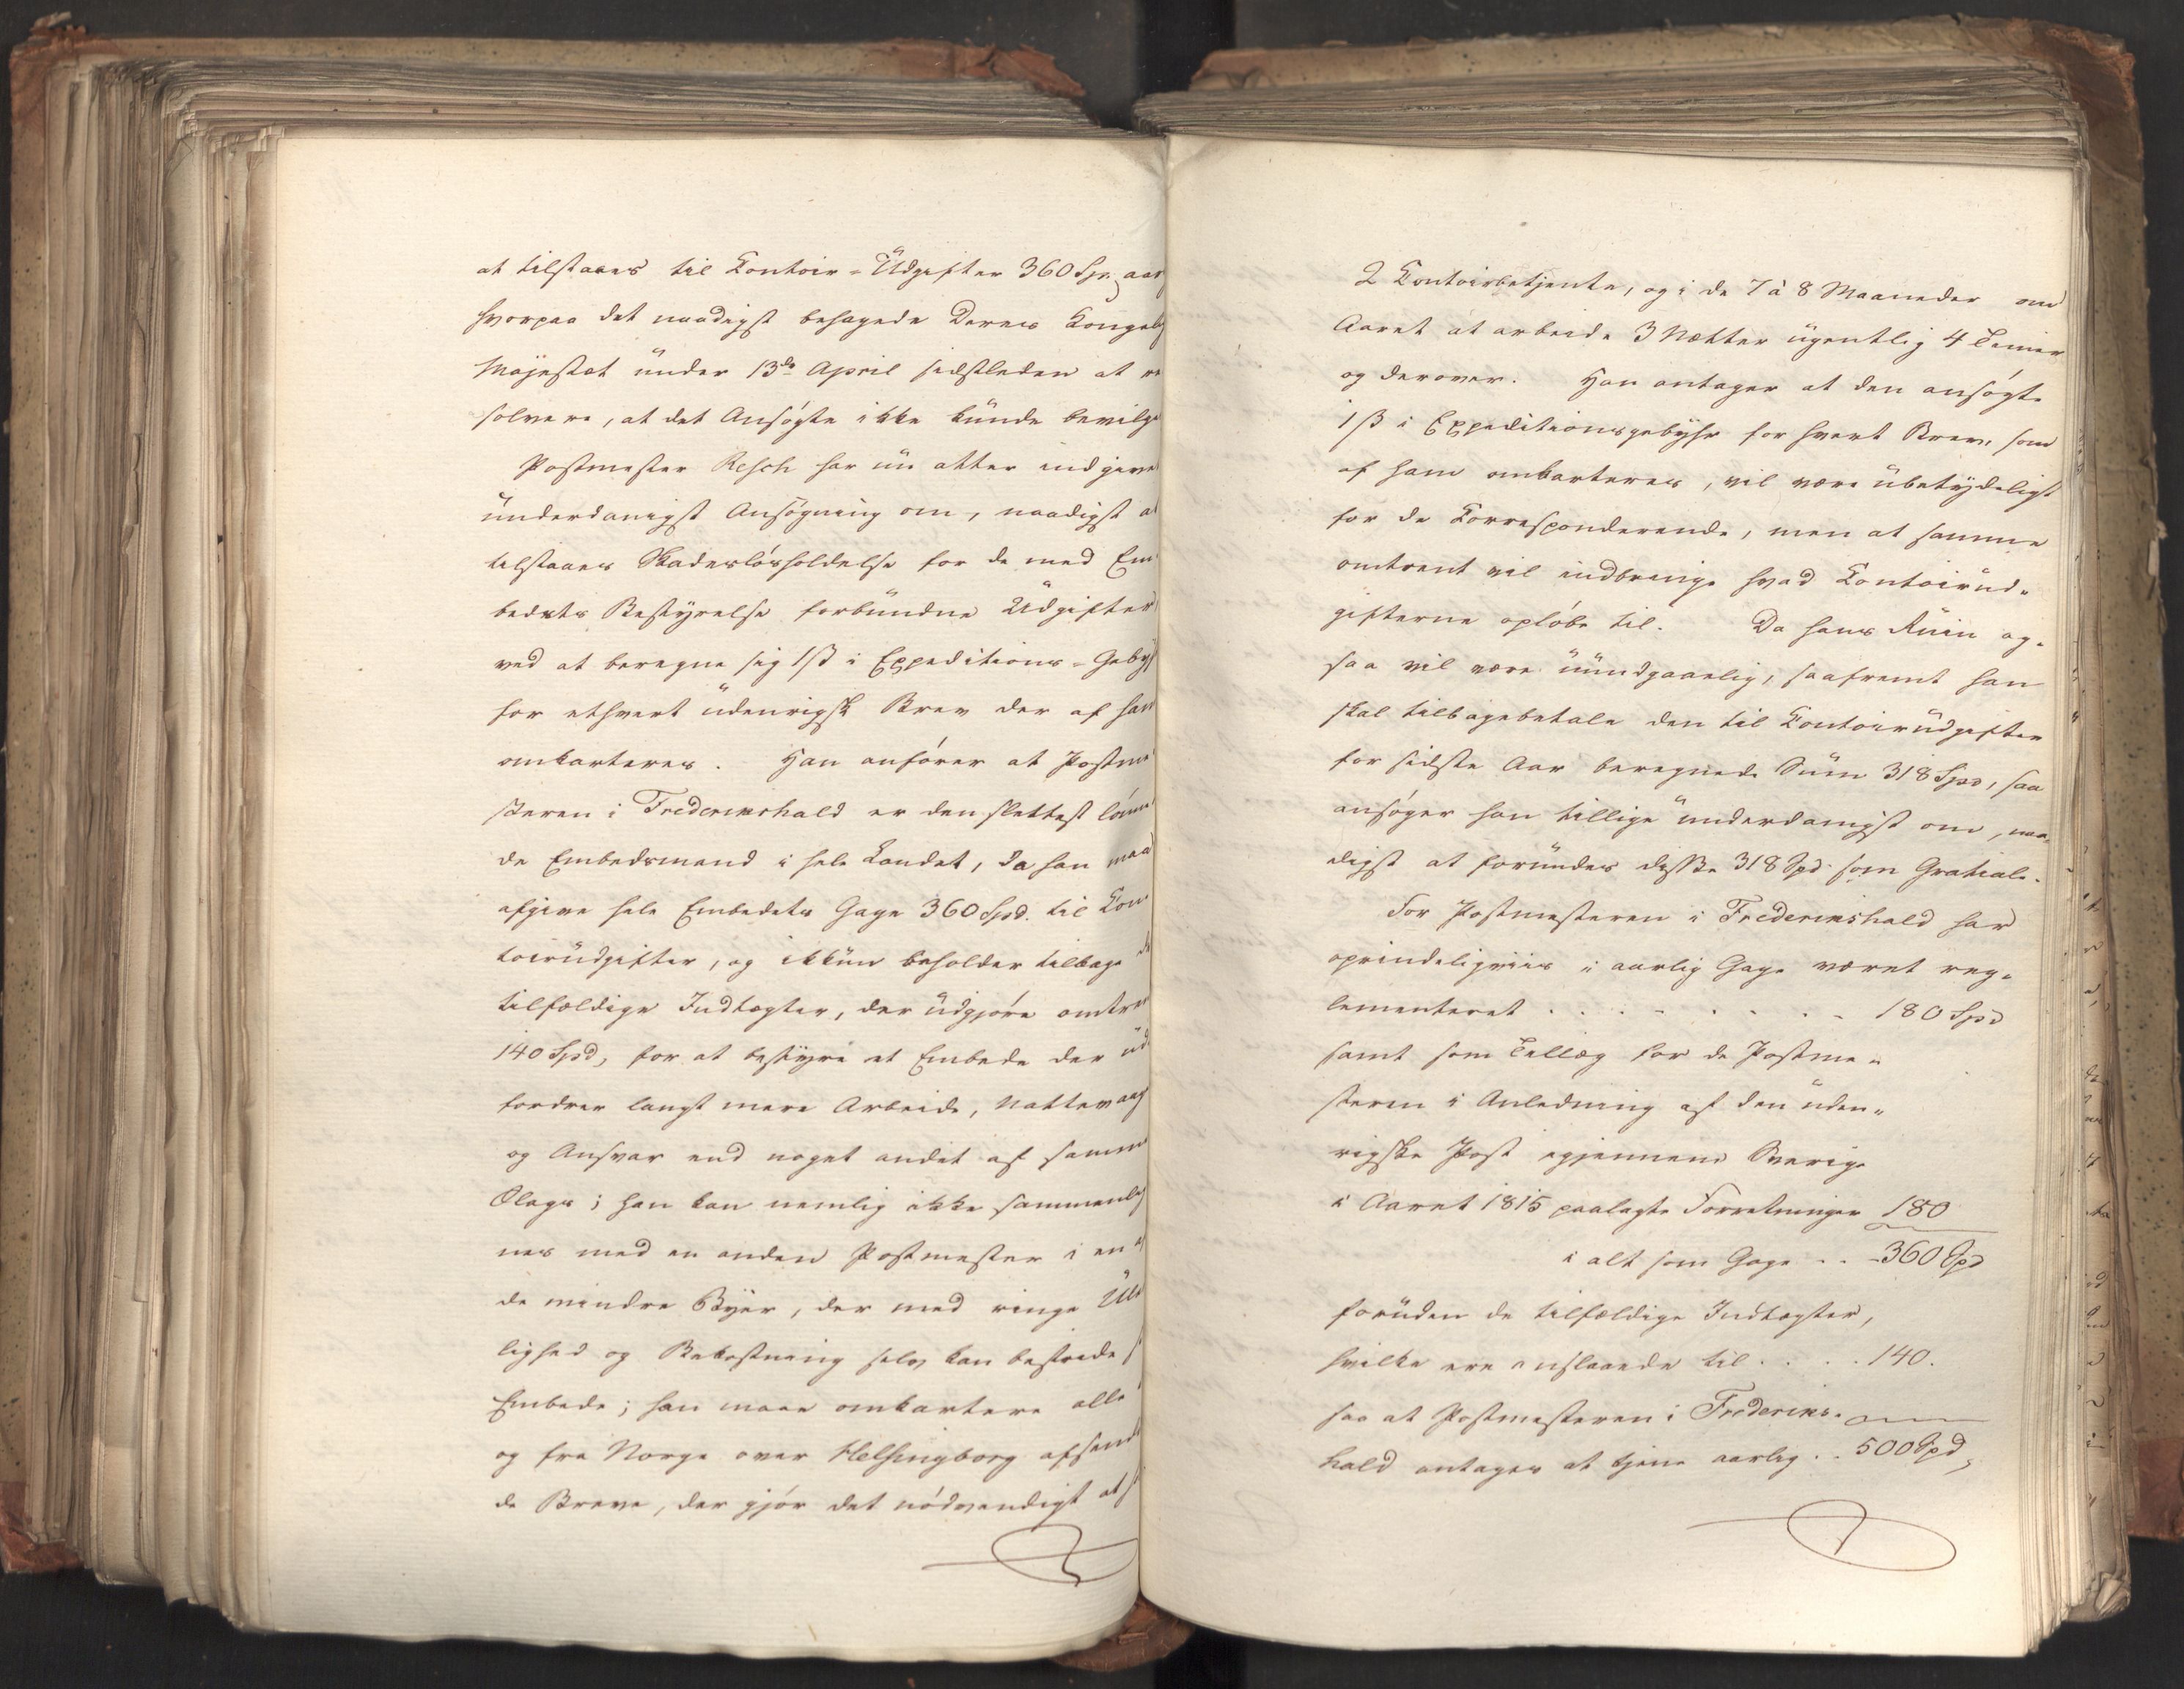 at tilstaaes til Contoir-Udgifter 360 Spd. aar
hvorpaa det naadigst behagede Deres Kongelig
Majestæt under 13de April sidstleden at re
solvere, at det Ansøgte ikke kunde bevilges
Postmester Resch har nu atter indgivet
underdanigst Ansøgning om, naadigst at
tilstaaes Skadesløsholdelse for de med Em-
bedets Bestyrelse forbundne Udgifter
ved at beregne sig 1 ß i Expeditions-Gebyhr
for ethvert udenrigsk Brev der af ham
omkarteres. Han anfører at Postme-
steren i Fredrikshald er den slettest lønne-
de Embedsmand i hele Landet, da han maa
afgive hele Embedets Gage 360 Spd. til Con-
toirudgifter, og ikkun beholder tilbage de
tilfældige Indtægter, der udgjøre omtrent
140 Spd, for at bestyre et Embede der ud-
fordrer langt mere Arbeide, Nattevaag
og Ansvar end noget andet af samme
Slags; han kan nemlig ikke sammenlig
nes med en anden Postmester i en af
de mindre Byer, der med ringe Ulei
lighed og Bekostning selv kan bestride sit
Embede; han maa omkartere alle
og fra Norge over Helsingborg afsend
de Breve, der gjør det nødvendigt at
2 Contoirbetjente, og i de 7 à 8 Maaneder om
Aaret at arbeide 3 Nætter ugentlig 4 Timer
og derover. Han antager at den ansøgte
1 ß i Expeditionsgebyhr for hvert Brev, som
af ham omkarteres, vil være ubetydeligt
for de Corresponderende, men at samme
omtrent vil indbringe hvad Contoirud-
gifterne opløbe til. Da hans Ruin og-
saa vil være uundgaaelig, saafremt han
skal tilbagebetale den til Contoirudgifter
for sidste Aar beregnede Sum 318 Spd, saa
ansøger han tillige underdanigst om, naa-
digst at forundes disse 318 Spd som Gratiale.
For Postmesteren i Frederikshald har
oprindeligviis i aarlig Gage været reg-
lementeret . . . . . . . . 180 Spd
samt som Tillæg for de Postme-
steren i Anledning af den uden-
rigske Post igjennem Sverige
i Aaret 1815 paalagte Forretninger 180
i alt som Gage . . . 360 Spd
foruden de tilfældige Indtægter,
hvilke ere anslaaede til . . . . 140.
saa at Postmesteren i Frederiks-
hald antages at tjene aarlig . . 500 Spd,